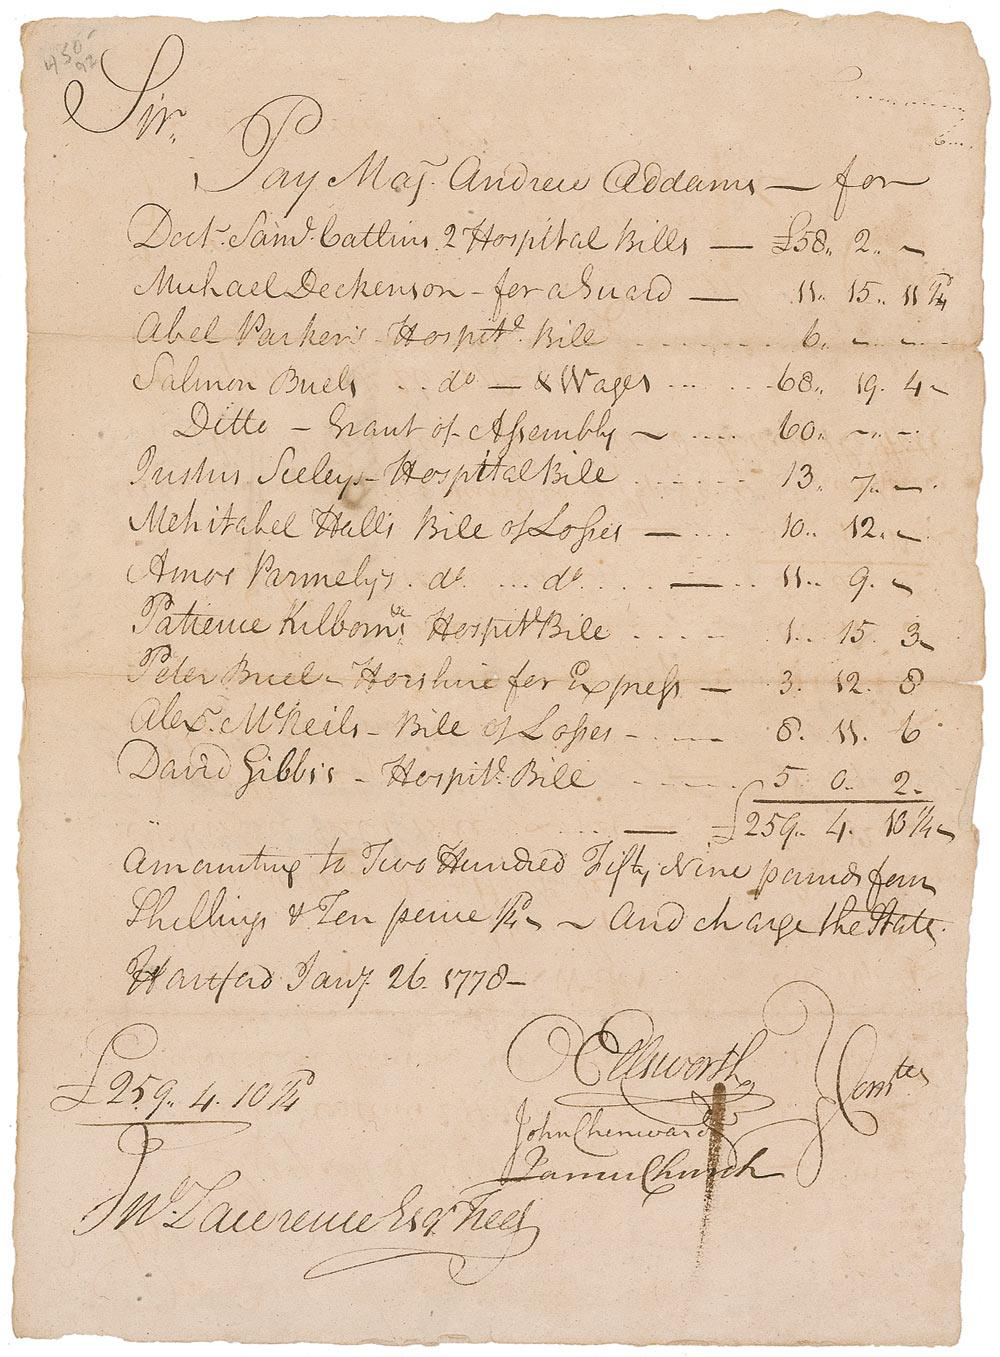 450
92
Sir,,
Pay Maj. Andrew Addams — for
Doctr. Saml. Catlins. 2 Hospital Bills — £58,, 2,, –
Michael Deckenson – for a Guard — 11.. 15.. 11 1/4
Abel Parkers Hospitl. Bile ........ 6,, – –
Salmon Buels ... do — & Wages ....... 68,, 19. 4 –
Ditto – Grant of Assembly ~ .... 60,, –.. –.
Justus Seeleys – Hospital Bile ...... 13. 7.. –.
Mehitabel Halls Bile of Losses — ... 10.. 12.. –
Amos Parmelys. do ... do .... — .. 11.. 9. –
Patience Kilborns Hospitl. Bile .... 1.. 15. 3 –
Peter Buel – Horshire for Express — 3. 12. 8
Alexr. McNeils – Bile of Losses – . — 8. 11. 6
David Gibbs's – Hospitl. Bill ..... 5 0.. 2..
... — £259.. 4. 13 1/4 –
Amounting to Two Hundred Fifty Nine pounds four
Shillings & Ten pence 1/4 ~ And charge the State.
Hartford Jany. 26. 1778 –
£259.. 4. 10 1/4
O Ellsworth
Comtee
John Chenward
James Church
Jno. Lawrence Esqr. Treasr